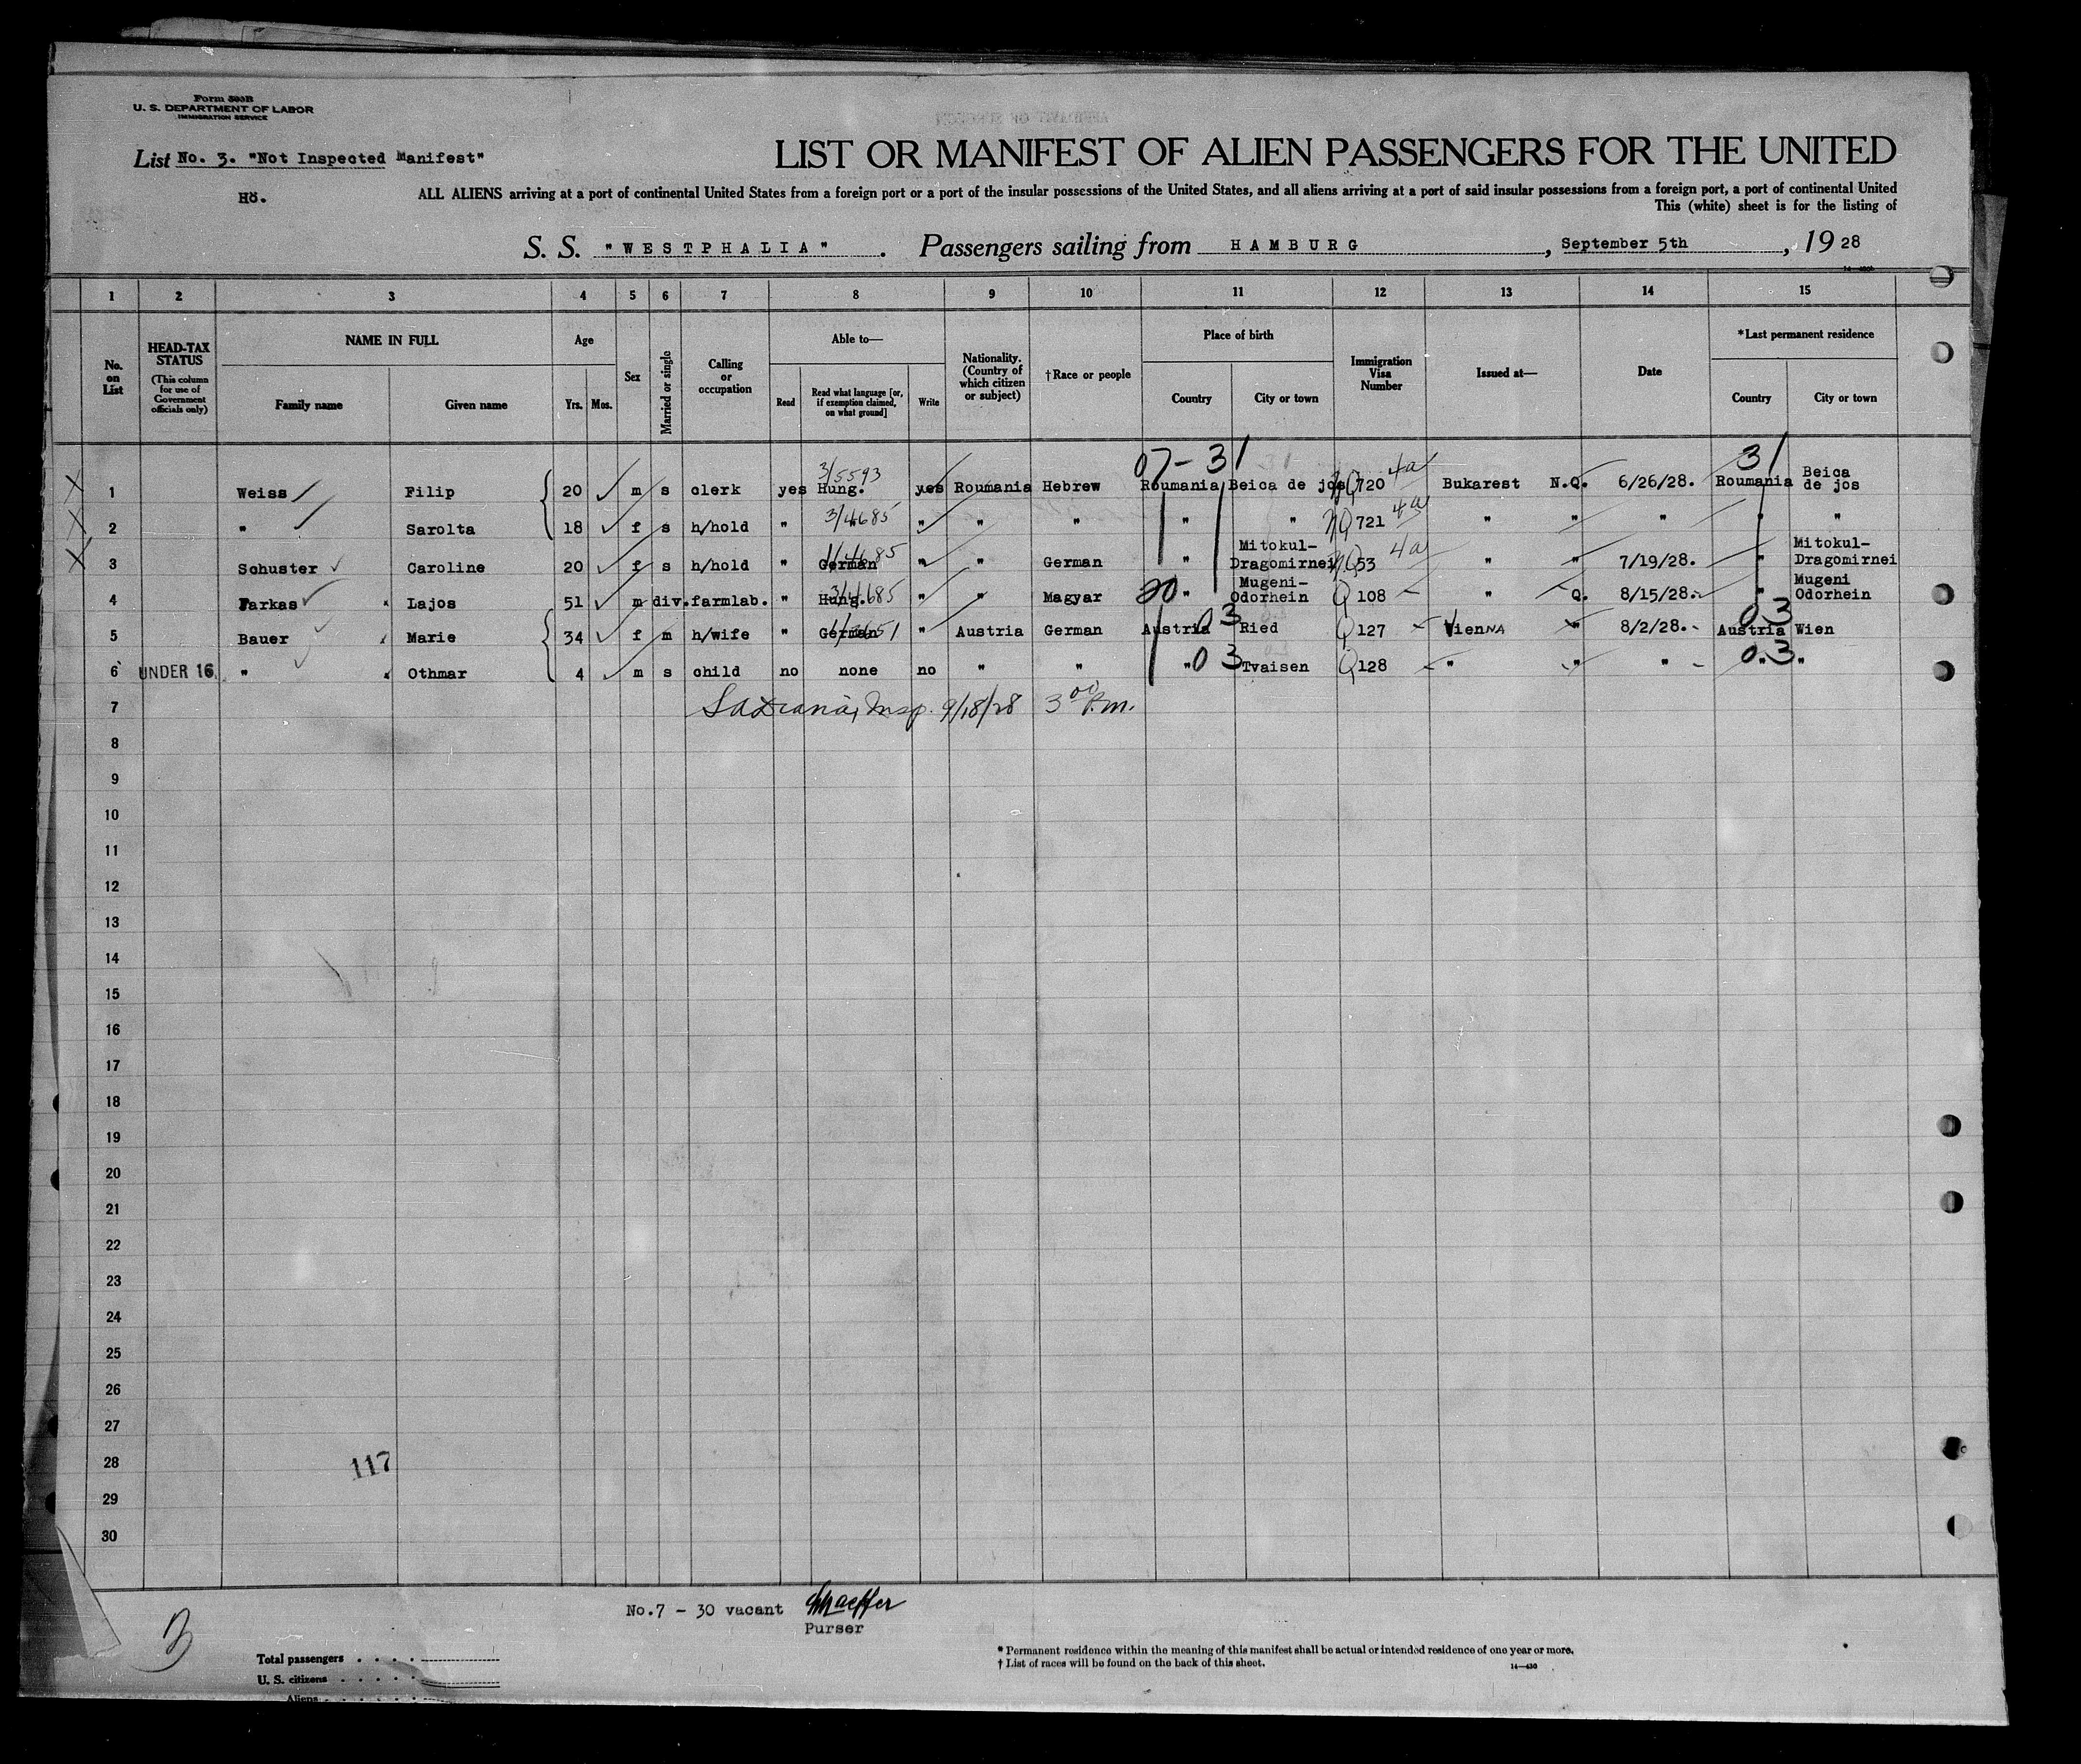 Form 500B
U. S. DEPARTMENT OF LABOR
IMMIGRATION SERVICE
List No. 3. "Not Inspected Manifest"
Hö.
LIST OR MANIFEST OF ALIEN PASSENGERS FOR THE UNITED
ALL ALIENS arriving at a port of continental United States from a foreign port or a port of the insular possessions of the United States, and all aliens arriving at a port of said insular possessions from a foreign port, a port of continental United
This (white) sheet is for the listing of
S. S. "WESTPHALIA". Passengers sailing from HAMBURG, September 5th, 1928
1 2 3 4 5 6 7 8 9 10 11 12 13 14 15
No. on List
HEAD-TAX STATUS (This column for use of Government officials only)
NAME IN FULL Family name Given name
Age Yrs. Mos.
Sex
Married or single
Calling or occupation
Able to— Read Read what language [or, if exemption claimed, on what ground] Write
Nationality. (Country of which citizen or subject)
†Race or people
Place of birth Country City or town
Immigration Visa Number
Issued at—
Date
*Last permanent residence Country City or town
07-31 31
3/5593 4a
1 Weiss Filip 20 m s clerk yes Hung. yes Roumania Hebrew Roumania Beica de jos NQ 720 Bukarest N.Q. 6/26/28. Roumania Beica de jos
3/4685 4a
2 " Sarolta 18 f s h/hold " " " " " " NQ 721 " " " " "
1/4685 4a
3 Schuster Caroline 20 f s h/hold " German " " German " Mitokul-Dragomirnei NQ 53 " " 7/19/28. " Mitokul-Dragomirnei
3/4685 20
4 Farkas Lajos 51 m div. farmlab. " Hung. " " Magyar " Mugeni-Odorhein Q 108 " Q. 8/15/28. " Mugeni Odorhein
03 03
5 Bauer Marie 34 f m h/wife " German " Austria German Austria Ried Q 127 Vienna " 8/2/28. Austria Wien
03 03
6 UNDER 16. " Othmar 4 m s child no none no " " " Tvaisen Q 128 " " " " "
7 Insp. 9/18/28 3 00 P.m.
8
9
10
11
12
13
14
15
16
17
18
19
20
21
22
23
24
25
26
27
28
117
29
30
No.7 - 30 vacant Schaeffer
Purser
3
Total passengers
U. S. citizens
Aliens
* Permanent residence within the meaning of this manifest shall be actual or intended residence of one year or more.
† List of races will be found on the back of this sheet.
14—430